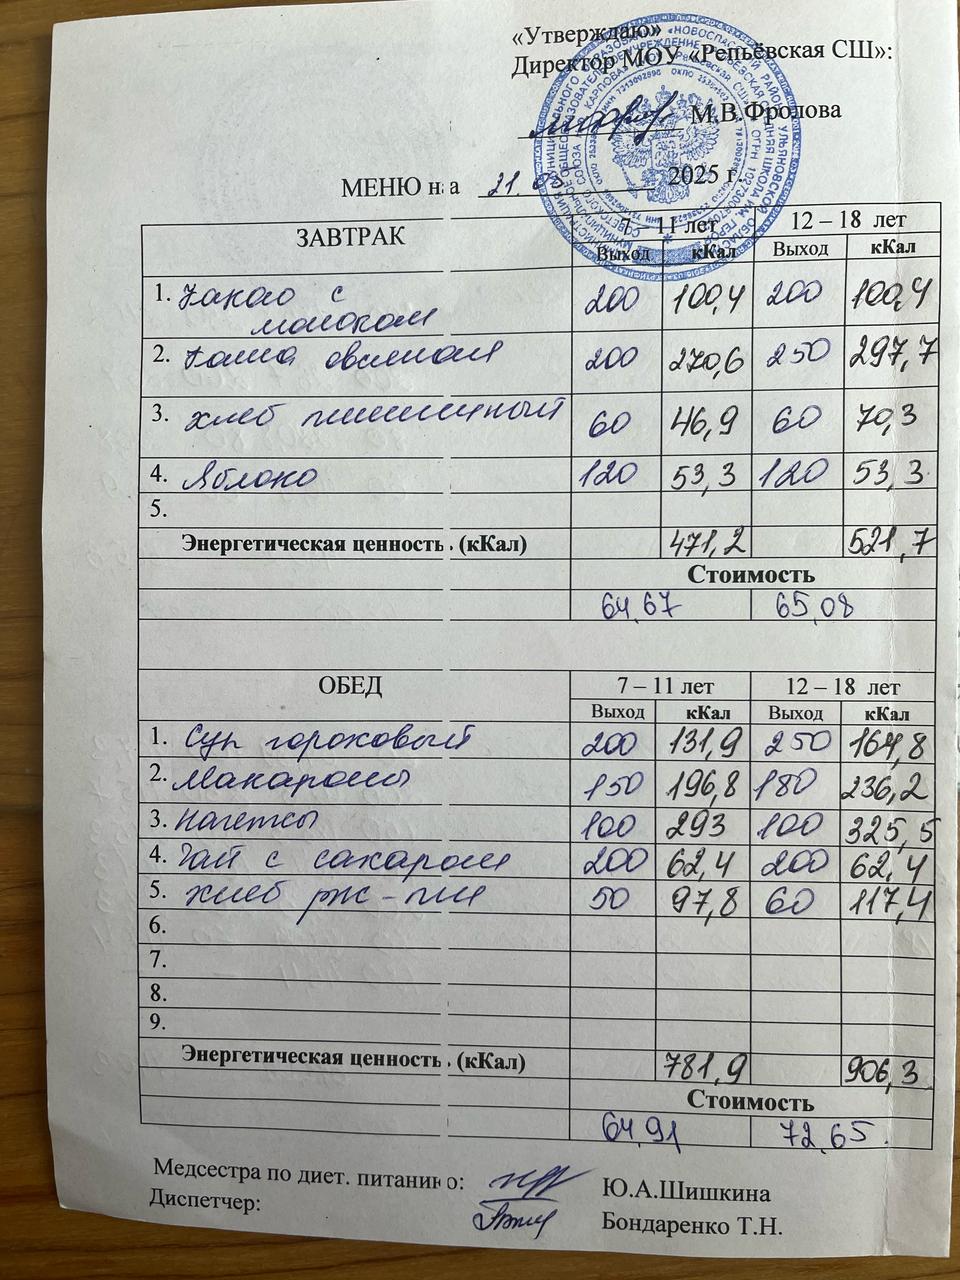 «Утверждаю»
Директор МОУ «Репьёвская СШ»:
М.В.Фролова
МЕНЮ на 21.05 2025 г.
ЗАВТРАК 7 – 11 лет 12 – 18 лет
Выход кКал Выход кКал
1. Какао с 200 100,4 200 100,4
молоком
2. Каша овсяная 200 270,6 250 297,7
3. хлеб пшеничный 60 46,9 60 70,3
4. Яблоко 120 53,3 120 53,3
5.
Энергетическая ценность (кКал) 471,2 521,7
Стоимость
64,67 65,08
ОБЕД 7 – 11 лет 12 – 18 лет
Выход кКал Выход кКал
1. Суп гороховый 200 131,9 250 164,8
2. Макароны 150 196,8 180 236,2
3. Нагетсы 100 293 100 325,5
4. Чай с сахаром 200 62,4 200 62,4
5. хлеб рж-пш 50 97,8 60 117,4
6.
7.
8.
9.
Энергетическая ценность (кКал) 781,9 906,3
Стоимость
64,91 72,65
Медсестра по диет. питанию: Ю.А.Шишкина
Диспетчер: Бондаренко Т.Н.